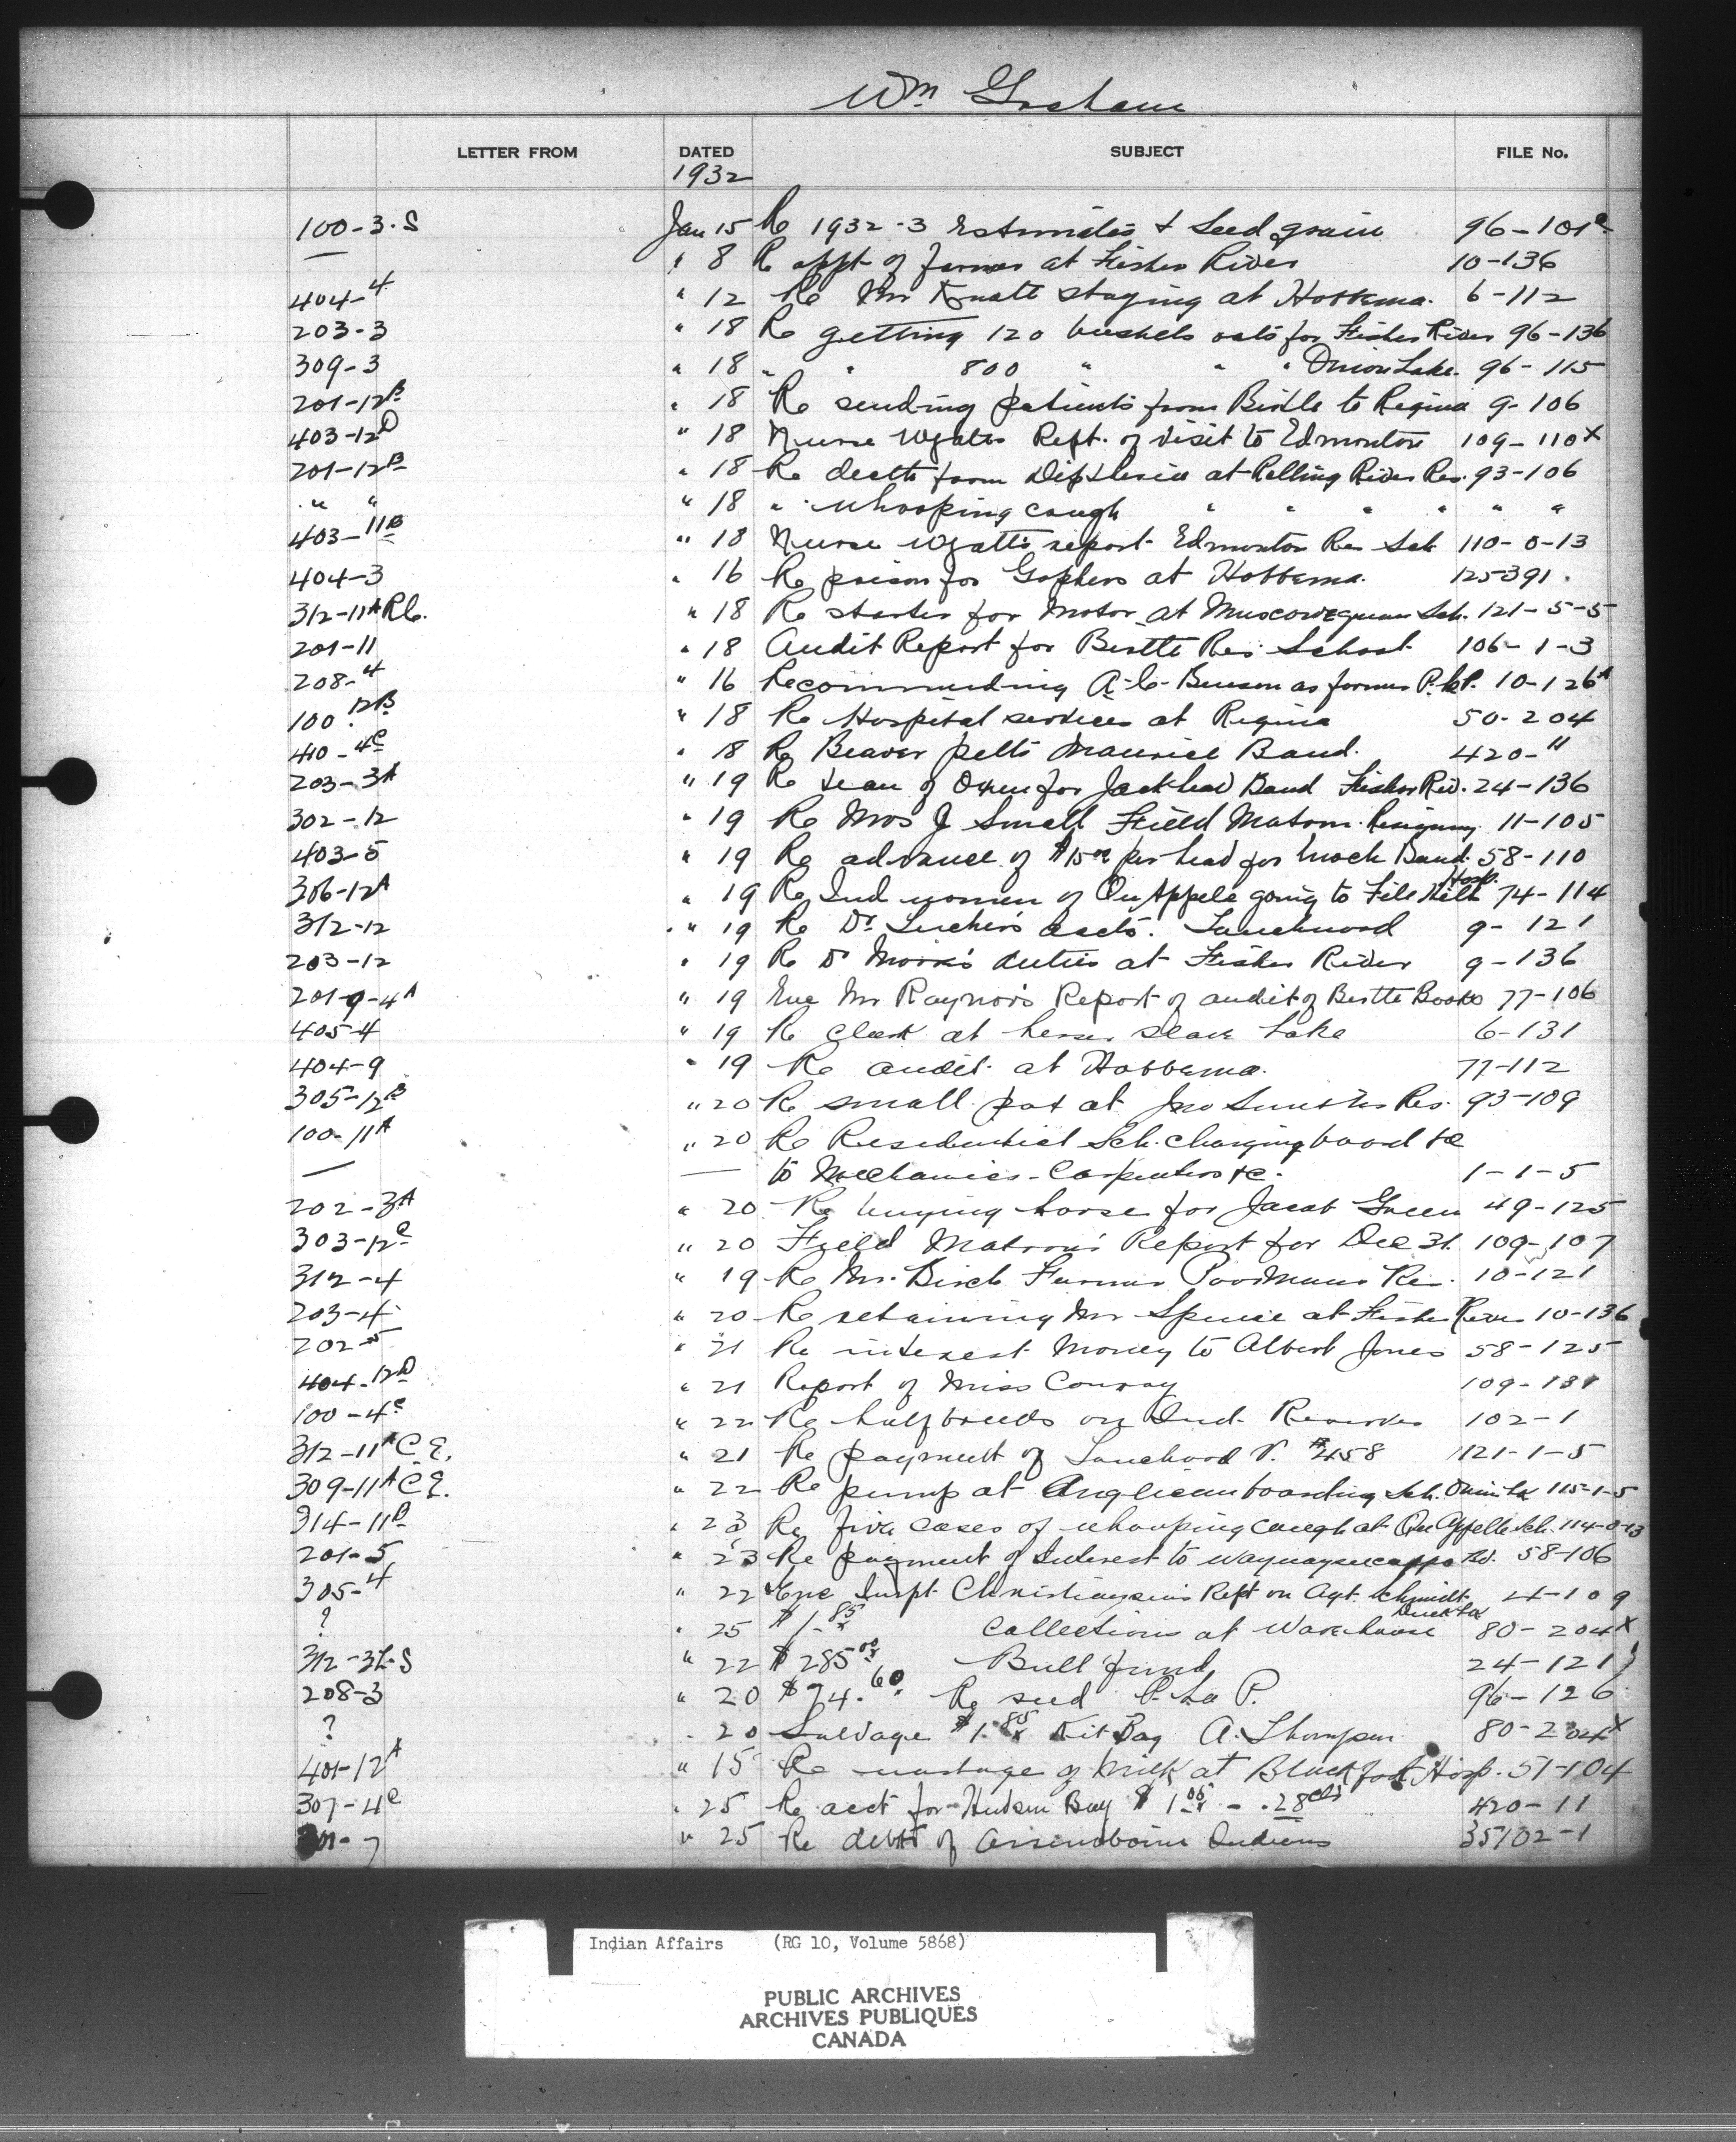 Wm Graham
LETTER FROM DATED SUBJECT FILE No.
1932
100-3-S Jan 15 Re 1932-3 Estimates & Seed grain 96-101c
— " 8 Re appt of farmer at Fisher River 10-136
404-4 " 12 Re Mr staying at Hobbema. 6-112
203-3 " 18 Re getting 120 bushels oats for Fisher River 96-136
309-3 " 18 " " 800 " " " Onion Lake. 96-115
201-12B " 18 Re sending patients from Birtle to Regina 9-106
403-12D " 18 Nurse Wyatts Rept. of visit to Edmonton 109-110X
201-12B " 18 Re death from Diptheria at Rolling River Res. 93-106
" " " 18 " whooping cough " " " " " "
403-11B " 18 Nurse Wyatt's report Edmonton Res Sch 110-0-13
404-3 " 16 Re poison for Gophers at Hobbema. 125-391.
312-11A R.C. " 18 Re starter for Motor at Muscowequan Sch. 121-5-5
201-11 " 18 Audit Report for Birtle Res. School 106-1-3
208-4 " 16 Recommending A.C. Benson as farmer P. la P. 10-126A
100-12B " 18 Re Hospital services at Regina 50-204
410-4C " 18 Re Beaver pelts Maurice Band. 420-11
203-3A " 19 Re team of Oxen for Jackhead Band Fisher Riv. 24-136
302-12 " 19 Re Mrs J Small Field Matron. 11-105
403-5 " 19 Re advance of $15.00 per head for Enoch Band. 58-110
306-12A " 19 Re Ind women of Qu'Appele going to File Hills Hosp. 74-114
312-12 " 19 Re Dr accts. Touchwood 9-121
203-12 " 19 Re Dr duties at Fisher River 9-136
201-9-4A " 19 Enc Mr Raynor's Report of audit of Birtle Books 77-106
405-4 " 19 Re Clerk at Lesser Slave Lake 6-131
404-9 " 19 Re audit at Hobbema. 77-112
305-12B " 20 Re small pox at Jno Smiths Res. 93-109
100-11A " 20 Re Residential Sch. charging board &c
— — to Mechanics - Carpenters &c. 1-1-5
202-3A " 20 Re buying horse for Jacob Green 49-125
303-12C " 20 Field Matron's Report for Dec 31. 109-107
312-4 " 19 Re Mr. Birch Farmer Poormans Res. 10-121
203-4 " 20 Re retaining Mr Spence at Fisher River 10-136
202-5 " 21 Re interest Money to Albert Jones 58-125
404-12D " 21 Report of Miss Conway 109-131
100-4C " 22 Re halfbreeds on Ind. Reserves 102-1
312-11A C.E. " 21 Re payment of Touchwood V. #458 121-1-5
309-11A C.E. " 22 Re pump at Anglican boarding Sch. Onion Lk 115-1-5
314-11D " 23 Re five cases of whooping cough at Qu'Appelle Sch. 114-0-13
201-5 " 23 Re payment of Interest to Waywayseecappo Bd. 58-106
305-4 " 22 Enc Inspt Christianson's Rept on Agt. Schmidt Duck Lk 4-109
? " 25 $1.85 Collections at Warehouse 80-204X
312-3L-S " 22 $285.00 Bull fund 24-121
208-3 " 20 $74.60 Re seed P. La P. 96-126
? " 20 Salvage $1.85 Kit Bag A. Thompson 80-204X
401-12A " 15 Re wastage of Milk at Blackfoot Hosp. 51-104
307-4C " 25 Re acct for Hudson Bay $1.00 - .28cts 420-11
-7 " 25 Re debts of Assinaboine Indians 35102-1
Indian Affairs (RG 10, Volume 5868)
PUBLIC ARCHIVES
ARCHIVES PUBLIQUES
CANADA